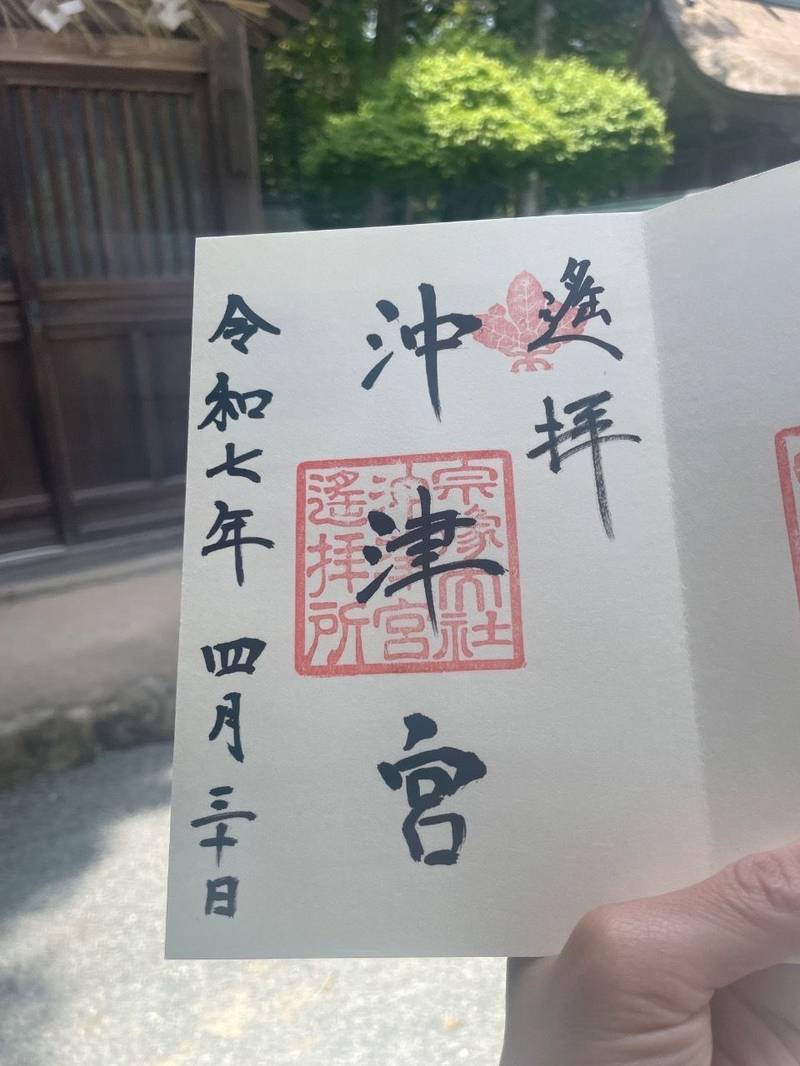 遙拝
沖津宮
宗像大社
沖津宮
遙拝所
令和七年 四月三十日